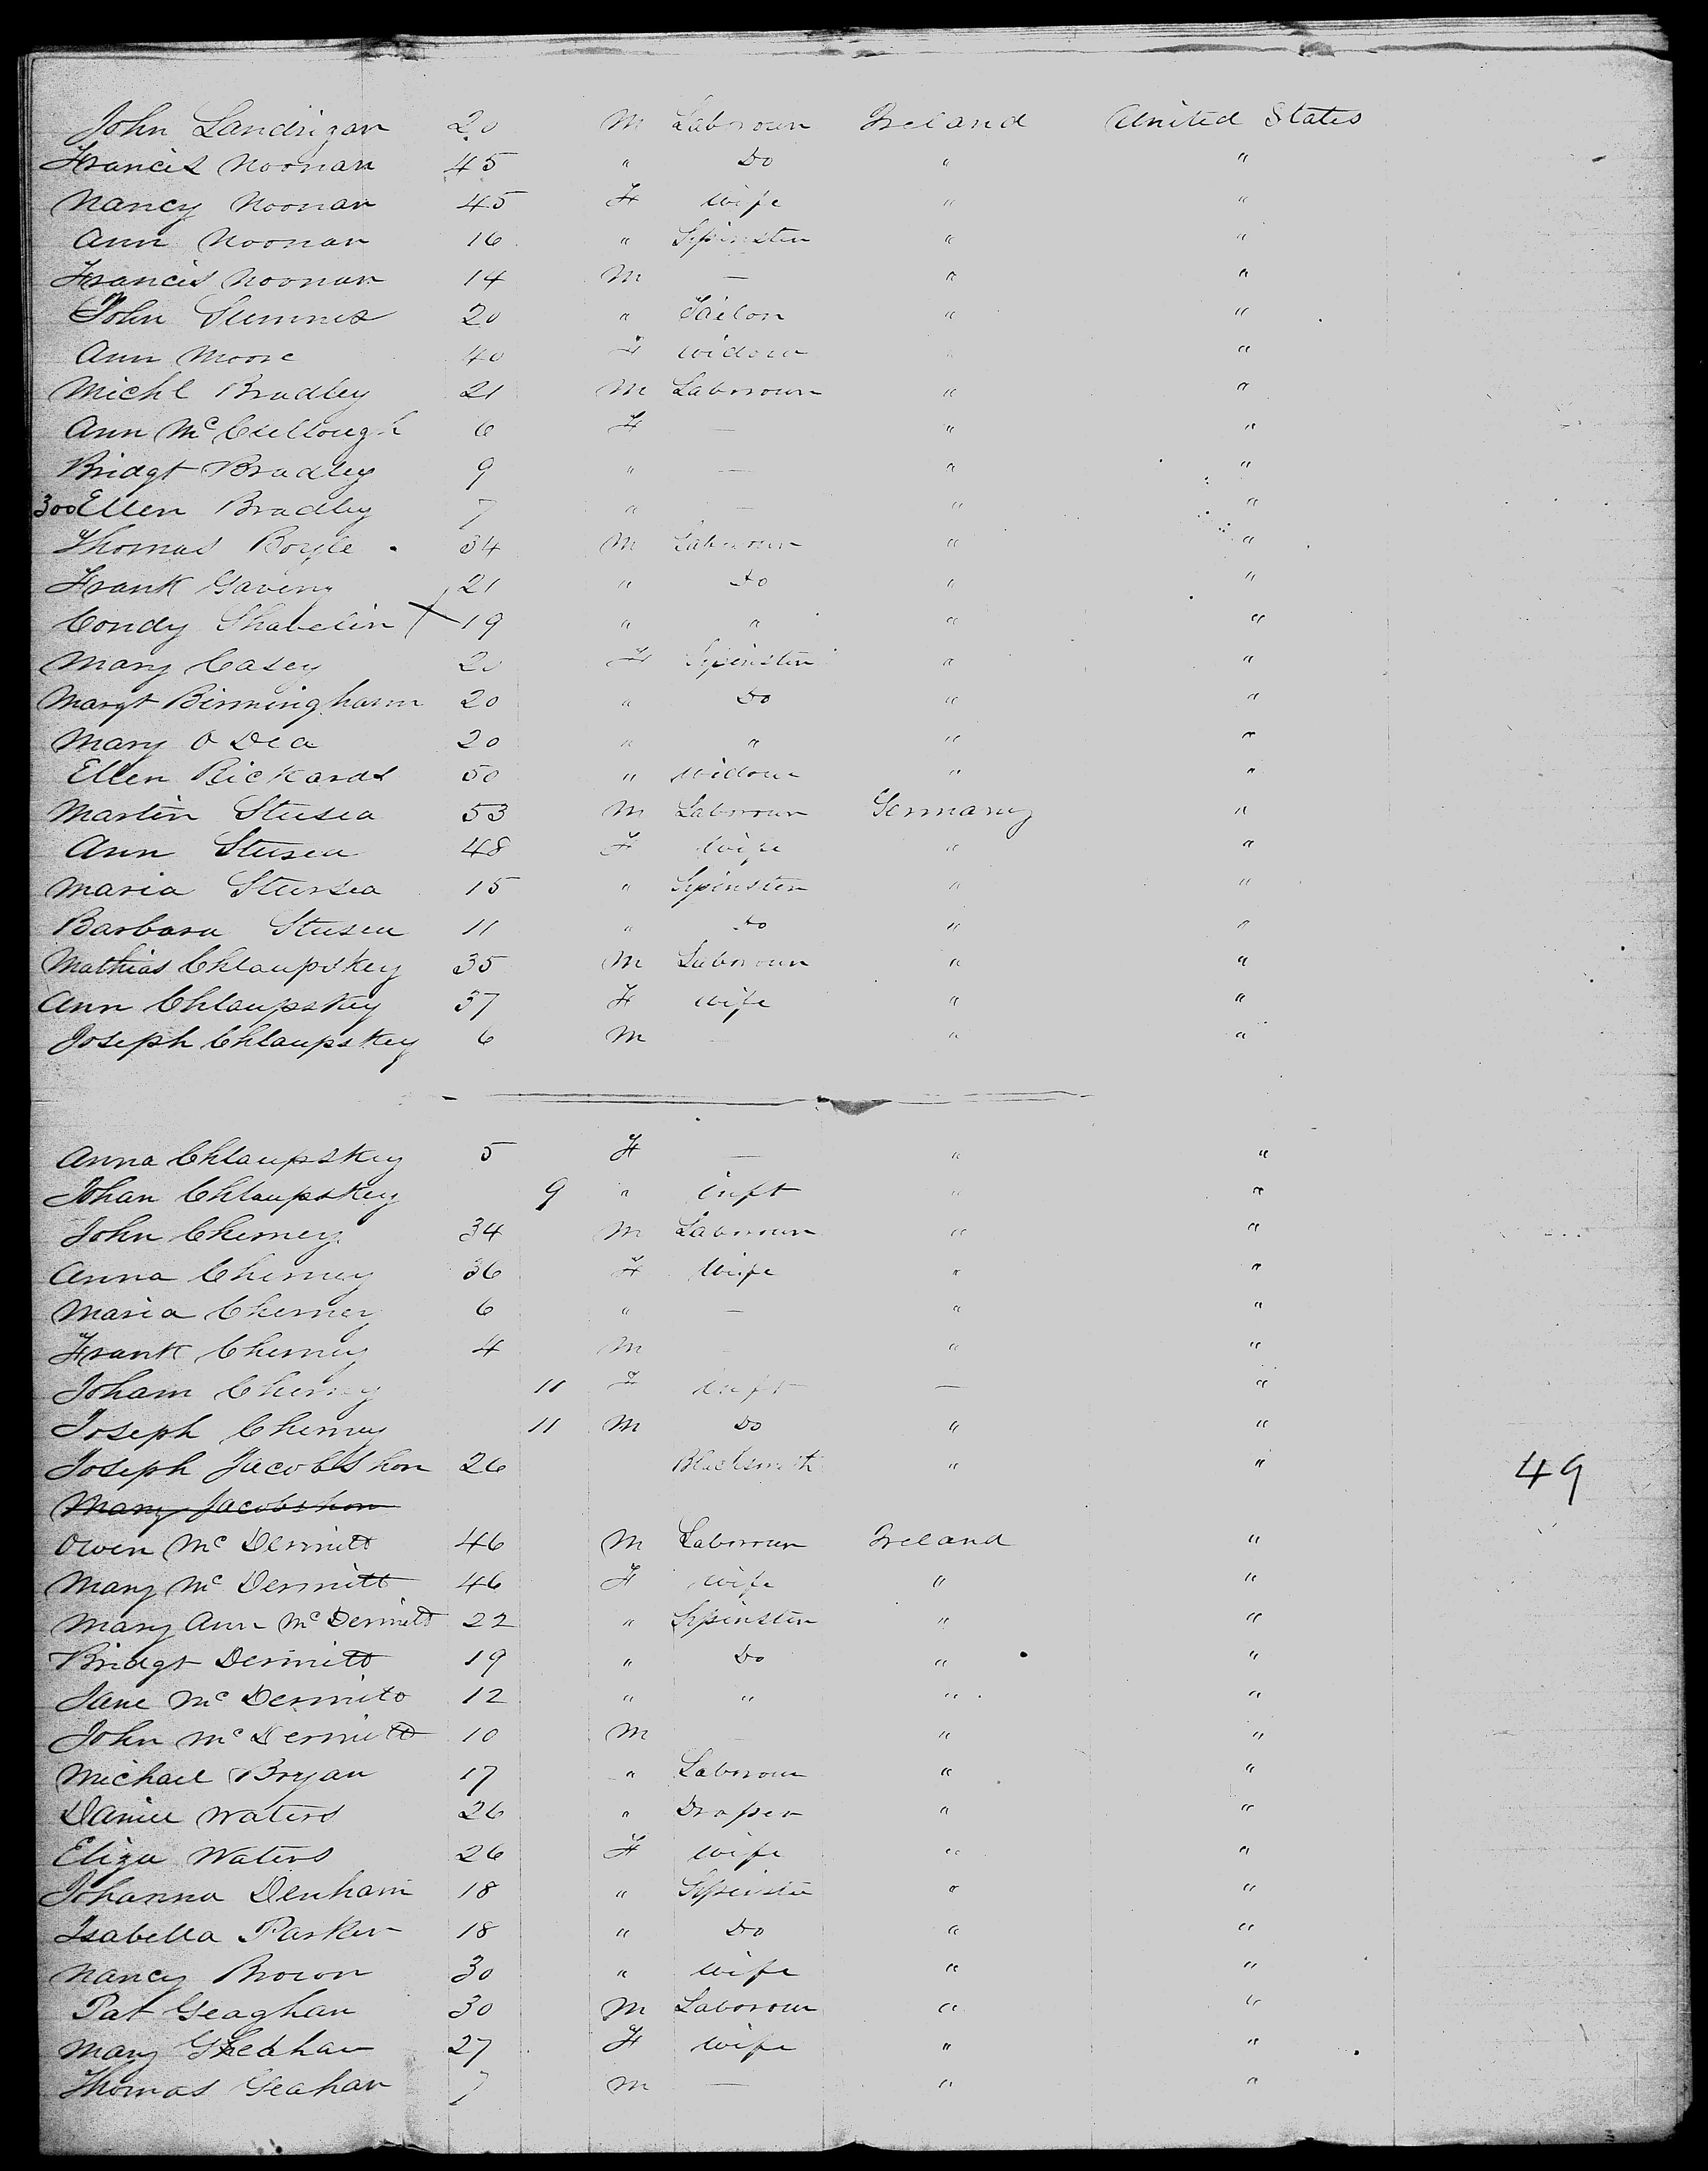 John Landrigan 20 M Labroour Ireland United States
Francis Noonan 45 " Do " "
Nancy Noonan 45 F Wife " "
Ann Noonan 16 " Spinster " "
Francis Noonan 14 M — " "
John Sumns 20 " Tailor " "
Ann Moore 40 F Widow " "
Michl Bradley 21 M Labroour " "
Ann McCullough 6 F — " "
Bridgt Bradley 9 " — " "
300 Ellen Bradley 7 " — " "
Thomas Boyle 34 M Labroour " "
Frank Gaveny 21 " Do " "
Condy Shabelin X 19 " " " "
Mary Casey 20 F Spinster " "
Margt Birmingham 20 " Do " "
Mary O Dea 20 " " " "
Ellen Rickards 50 " Widow " "
Martin Stusea 53 M Labroour Germany "
Ann Stusea 48 F Wife " "
Maria Stursea 15 " Spinster " "
Barbara Stusea 11 " Do " "
Mathias Chlaupskey 35 M Labroour " "
Ann Chlaupskey 37 F Wife " "
Joseph Chlaupskey 6 M " "
Anna Chlaupskey 5 F — " "
Johan Chlaupskey 9 " Inft " "
John Cherney 34 M Labroour " "
Anna Cherney 36 F Wife " "
Maria Cherney 6 " — " "
Frank Cherney 4 M " "
Joham Cherney 11 F Inft — "
Joseph Cherney 11 M Do " "
Joseph Jacobshon 26 Blacksmith " " 49
Mary Jacobshon
Owen McDermitt 46 M Labroour Ireland "
Mary McDermitt 46 F Wife " "
Mary Ann McDermitt 22 " Spinster " "
Bridgt Dermitt 19 " Do " "
Jane McDermitt 12 " " " "
John McDermitt 10 M " "
Michael Bryan 17 " Labroour " "
Daniel Waters 26 " Draper " "
Eliza Waters 26 F Wife " "
Johanna Denham 18 " Spinster " "
Isabella Parker 18 " Do " "
Nancy Brown 30 " Wife " "
Pat Geaghan 30 M Labroour " "
Mary Gheahan 27 F Wife " "
Thomas Geahan 7 M — " "